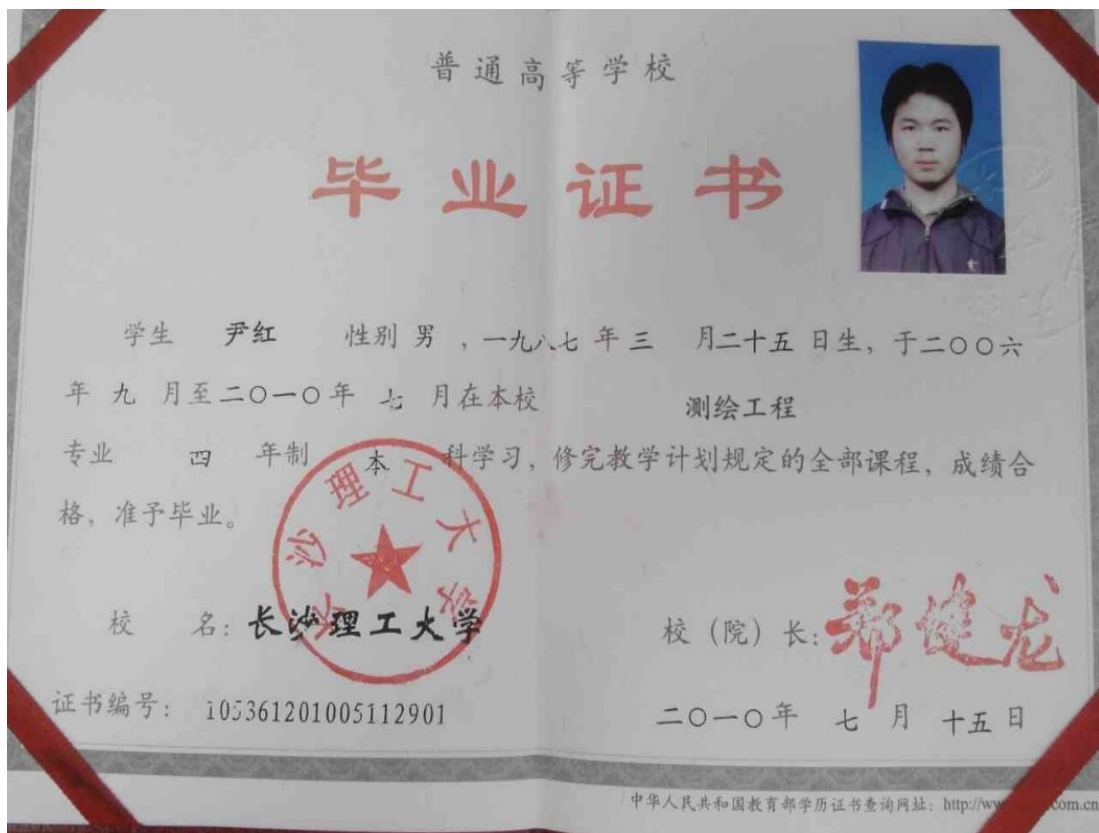 普通高等学校
毕业证书
学生 尹红 性别 男 ，一九八七 年 三 月二十五 日生，于二〇〇六
年 九 月至二〇一〇年 七 月在本校 测绘工程
专业 四 年制 本 科学习，修完教学计划规定的全部课程，成绩合
格，准予毕业。
长沙理工大学
校 名：长沙理工大学
校（院）长：郑健龙
证书编号： 105361201005112901
二〇一〇年 七 月 十五 日
中华人民共和国教育部学历证书查询网址：http://ww com.cn